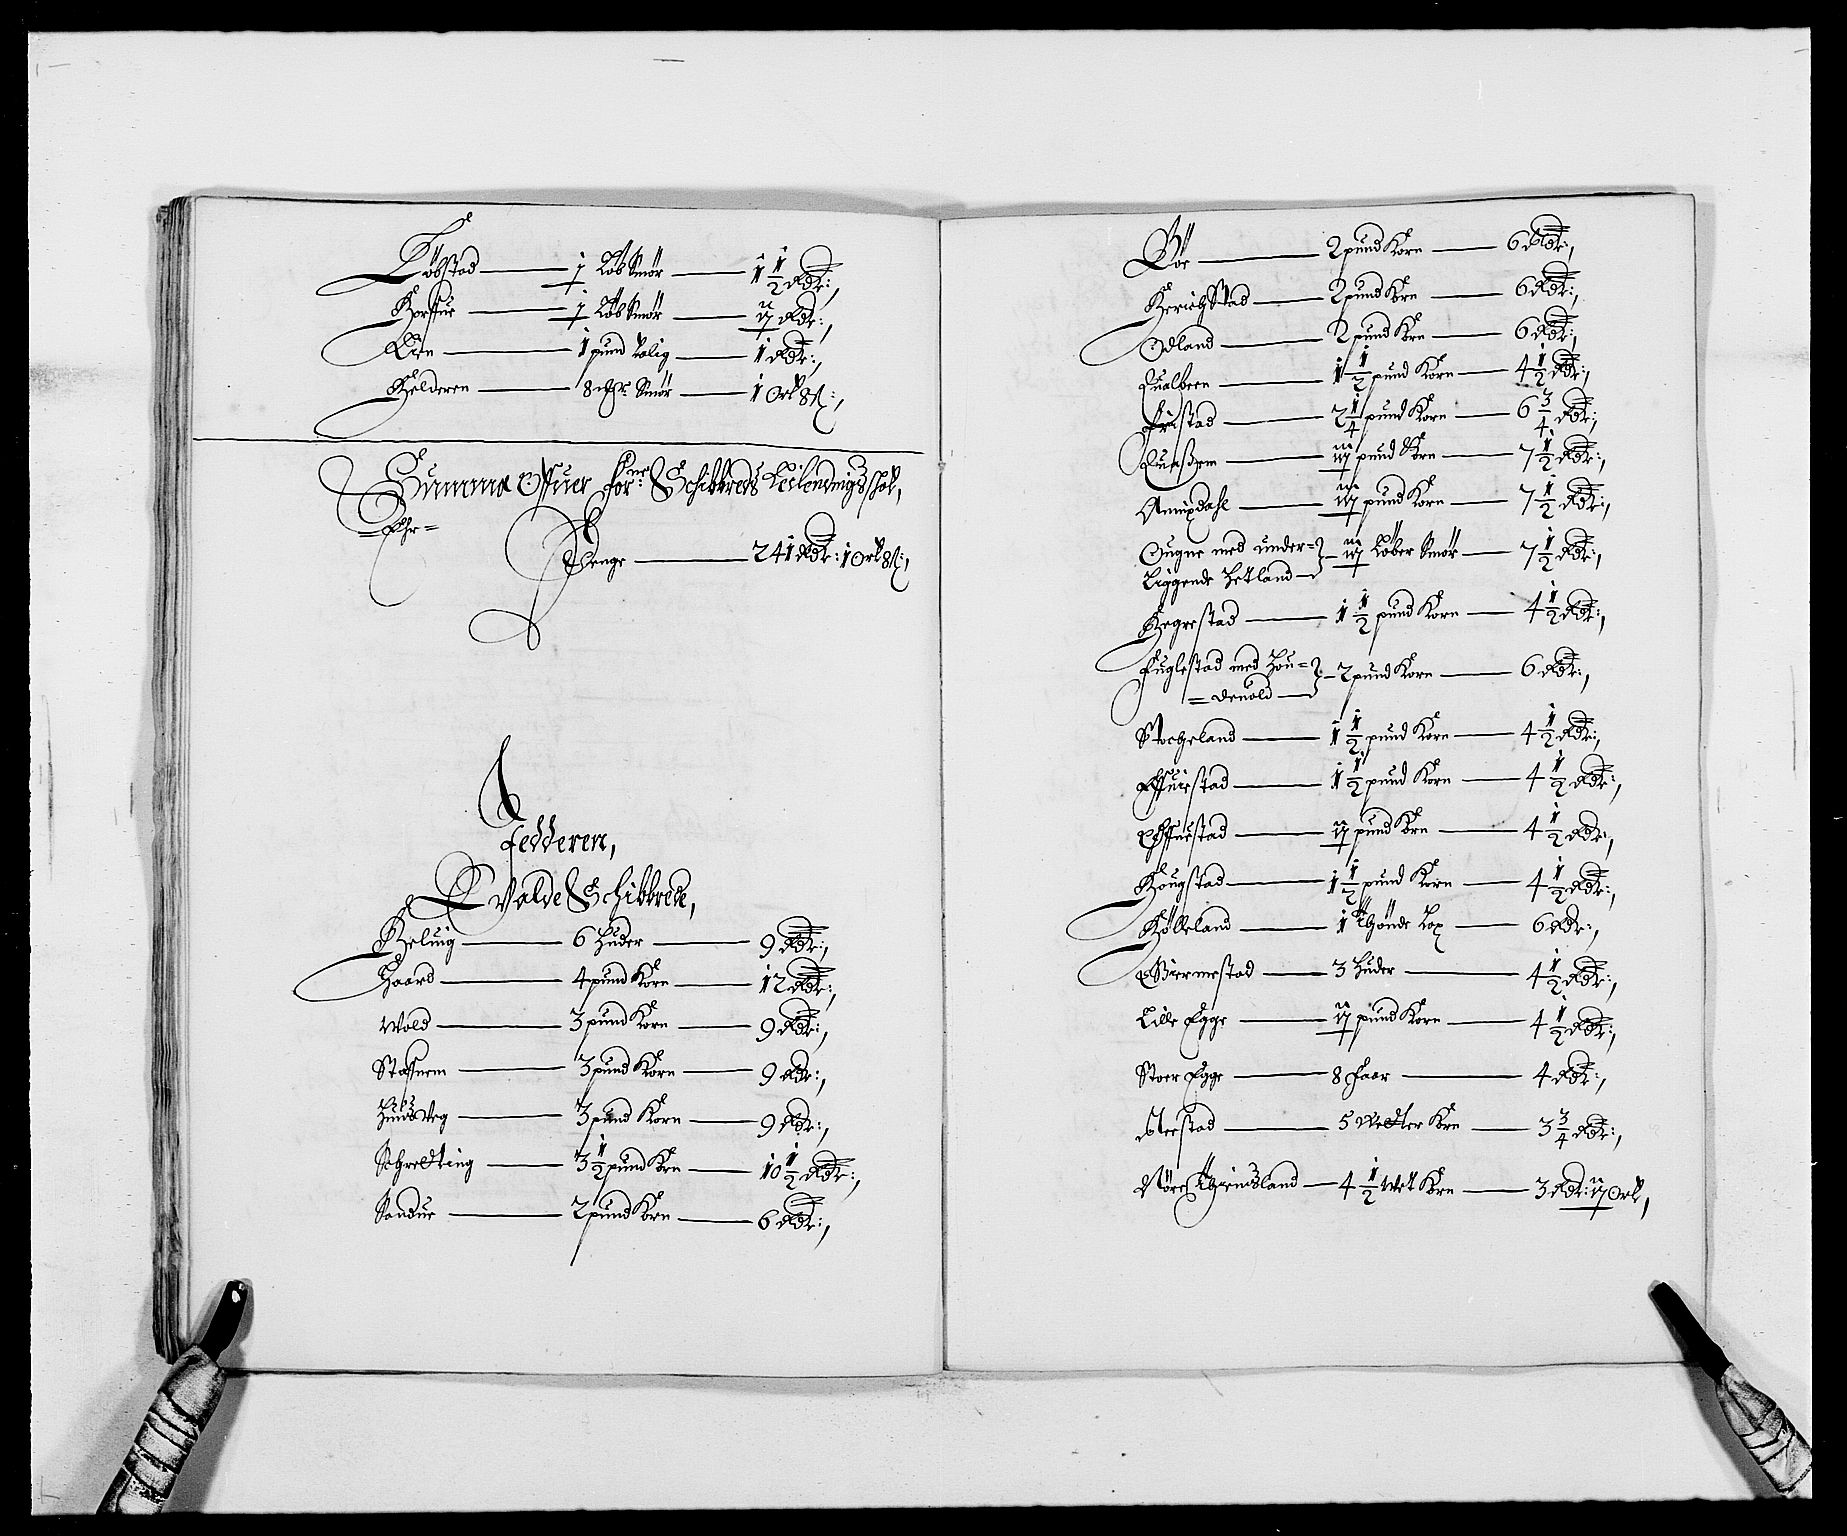 Löbstad — j Löb Smör — 1 1/2 Rdr:,
Korssue — j Löb Smör — ij Rdr:,
Lien — 1 pund Talig — 1 Rdr:,
Helderen — 8 Smör — 1 Ort 8 s:,
Summa Offuer for:ne Schibbreds Leilendings schat,
=Ehr=
Penge — 241 Rdr: 1 Ort 8 s:,
Jedderen,
Hvalde Schibbrede,
Heluig — 6 Huder — 9 Rdr:,
Haard — 4 pund Korn — 12 Rdr:,
Wold — 3 pund Korn — 9 Rdr:,
Stafnem — 3 pund Korn — 9 Rdr:,
Hudsveg — 3 pund Korn — 9 Rdr:,
Schretting — 3 1/2 pund Korn — 10 1/2 Rdr:,
Sandue — 2 pund Korn — 6 Rdr:,
Böe — 2 pund Korn — 6 Rdr:,
Kerichstad — 2 pund Korn — 6 Rdr:,
Odland — 2 pund Korn — 6 Rdr:,
Qualbeen — 1 1/2 pund Korn — 4 1/2 Rdr:,
Fristad — 2 1/4 pund Korn — 6 3/4 Rdr:,
Quaßem — iij pund Korn — 7 1/2 Rdr:,
Annixdahl — iij pund Korn — 7 1/2 Rdr:,
Ougne med under=
liggende Hetland — iij Löber Smör — 7 1/2 Rdr:,
Hegrestad — 1 1/2 pund Korn — 4 1/2 Rdr:,
Fuglestad med Hou=
=deuold — 2 pund Korn — 6 Rdr:,
Stocheland — 1 1/2 pund Korn — 4 1/2 Rdr:,
Effuiestad — 1 1/2 pund Korn — 4 1/2 Rdr:,
Effuestad — ij pund Korn — 4 1/2 Rdr:,
Hougstad — 1 1/2 pund Korn — 4 1/2 Rdr:,
Höbeland — 1 Thönde Lax — 6 Rdr:,
Biermestad — 3 Huder — 4 1/2 Rdr:,
Lille Egge — ij pund Korn — 4 1/2 Rdr:,
Stoer Egge — 8 Faar — 4 Rdr:,
Aarstad — 5 Wetter Korn — 3 3/4 Rdr:,
Nöre Thiensland — 4 1/2 Wet Korn — 3 Rdr: ij Ort,